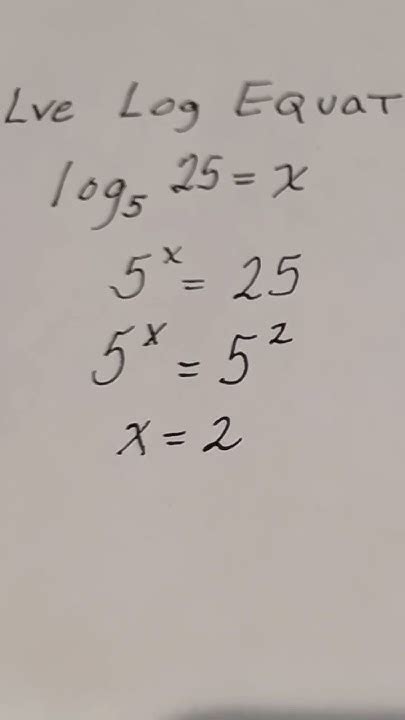 Lve Log EQUAT
log₅ 25 = x
5ˣ = 25
5ˣ = 5²
x = 2